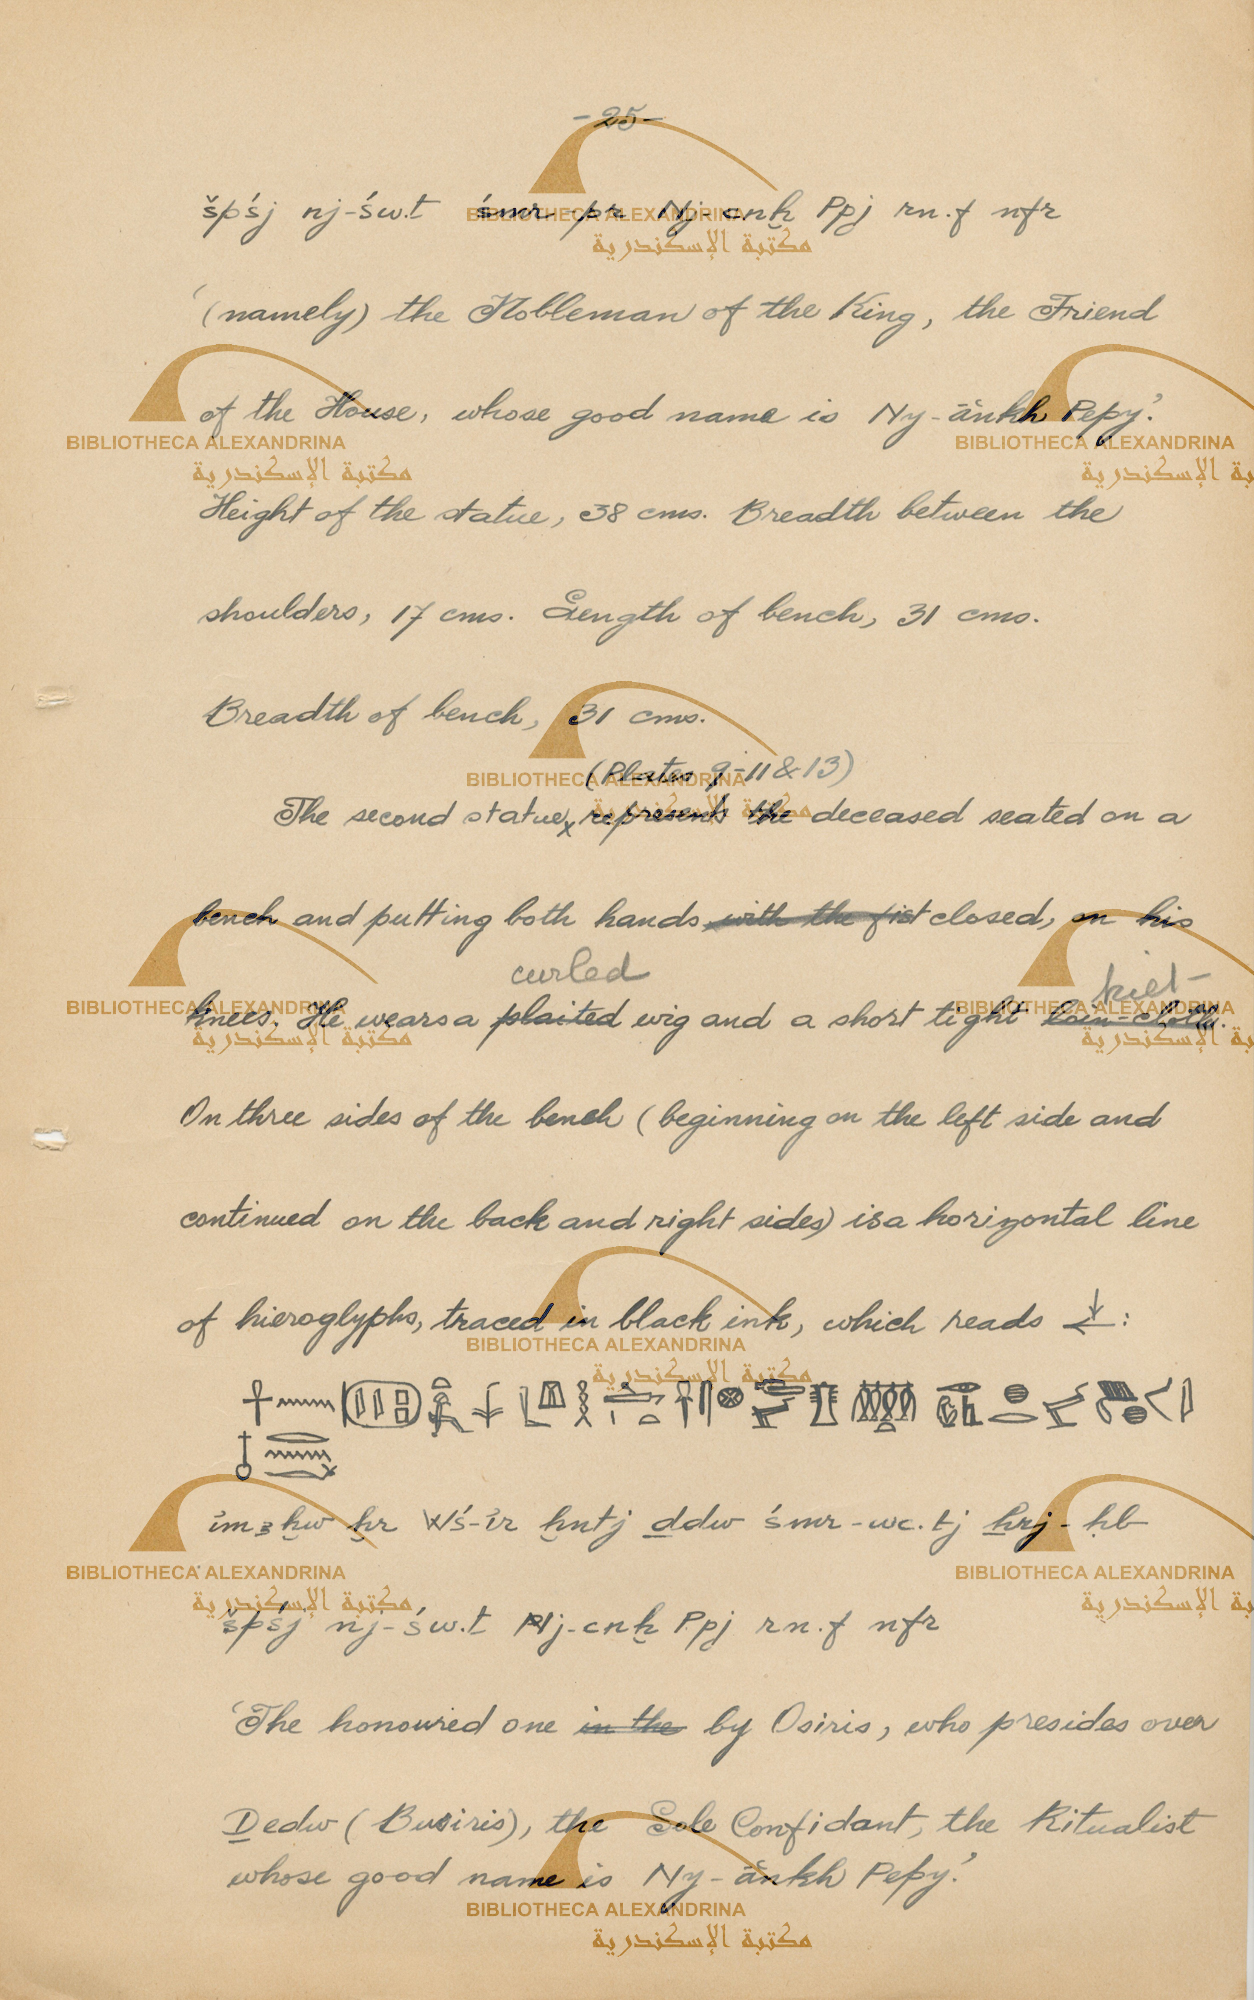 -25-
špśj nj-św.t śmr-pr Nj-cnḫ Ppj rn.f nfr
'(namely) the Nobleman of the King, the Friend
of the House, whose good name is Ny-ânkh Pepy'.
Height of the statue, 38 cms. Breadth between the
shoulders, 17 cms. Length of bench, 31 cms.
Breadth of bench, 31 cms.
(Plates 9-11 & 13)
The second statue x represents the deceased seated on a
bench and putting both hands, with the fist closed, on his
curled kilt-
knees. He wears a plaited wig and a short tight loin-cloth.
On three sides of the bench (beginning on the left side and
continued on the back and right sides) is a horizontal line
of hieroglyphs, traced in black ink, which reads :
ἰmꜣḫw ḫr Wś-ἰr ḫntj ḏdw śmr-wc.tj ẖrj-ḥb
špśj nj-św.t Nj-cnḫ Ppj rn.f nfr
'The honoured one in the by Osiris, who presides over
Ḏedw (Busiris), the Sole Confidant, the Ritualist
whose good name is Ny-ânkh Pepy'.
BIBLIOTHECA ALEXANDRINA
مكتبة الإسكندرية